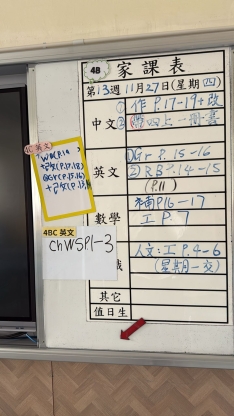 4B 家課表
第13週11月27日(星期四)
中文 ①作 P.17-19+改
② 四上一冊書
英文 ①Gr P.15-16
②RB P.14-15
(P.11)
數學 補P16-17
工 P.7
人文:工P.4-6
(星期一交)
其它
值日生
4C 英文
+改(P.17,18)
4BC 英文
ChWSP1-3